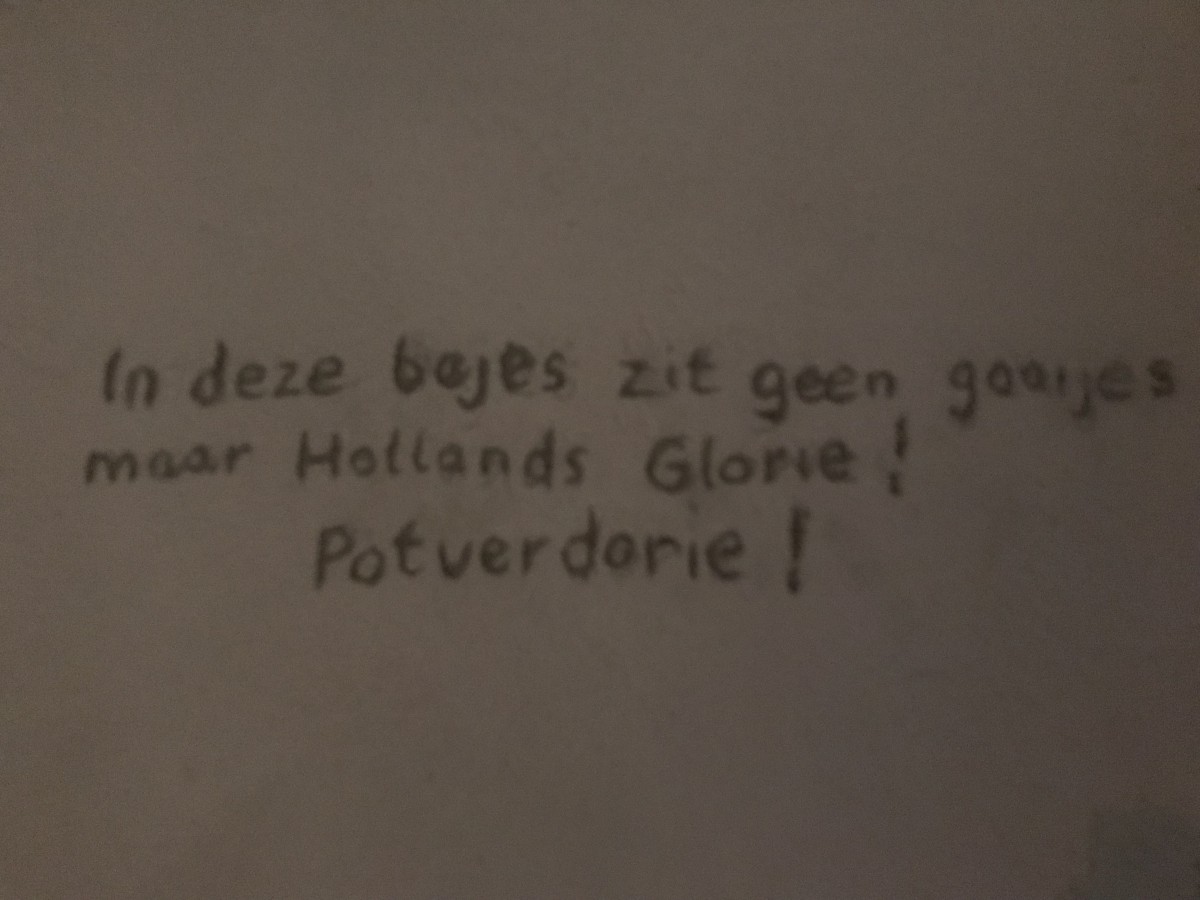 In deze bajes zit geen gaaijes
maar Hollands Glorie!
Potverdorie!